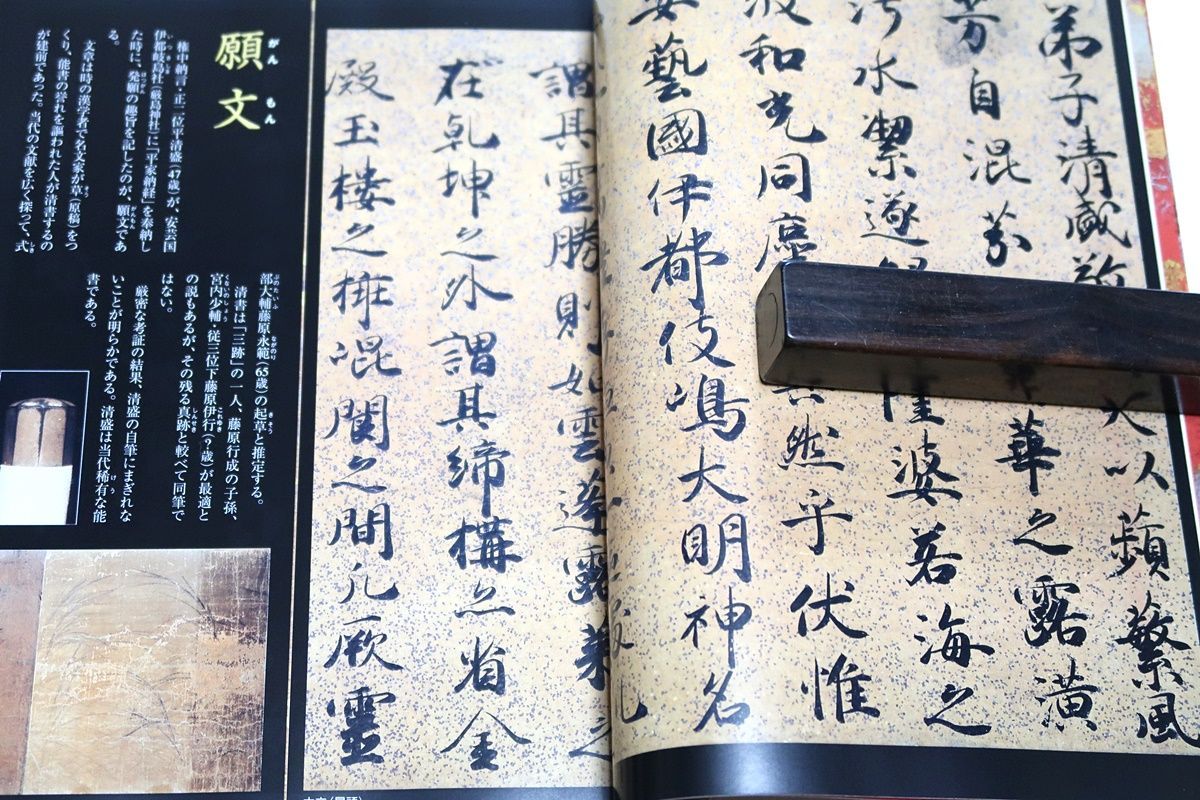 弟子清盛敬 以蘋蘩風
芳自混芬 華之露潢
汚水潔遂 婆若海之
和光同塵 然乎伏惟
安藝國伊都伎嶋大明神名
謂其靈勝則如雲蓬露菜之
在乾坤之外謂其締構亦省金
殿玉樓之 混閬之間凡厥靈
願文
がんもん
権中納言・正二位平清盛(47歳)が、安芸国
伊都岐島社(厳島神社)に「平家納経」を奉納し
た時に、発願の趣旨を記したのが、願文であ
る。
文章は時の漢学者で名文家が草(原稿)をつ
くり、能書の誉れを謳われた人が清書するの
が建前であった。当代の文献を広く探って、式
部大輔藤原永範(65歳)の起草と推定する。
清書は「三跡」の一人、藤原行成の子孫、
宮内少輔・従三位下藤原伊行(?歳)が最適と
の説もあるが、その残る真跡と較べて同筆で
はない。
厳密な考証の結果、清盛の自筆にまぎれな
いことが明らかである。清盛は当代稀有な能
書である。